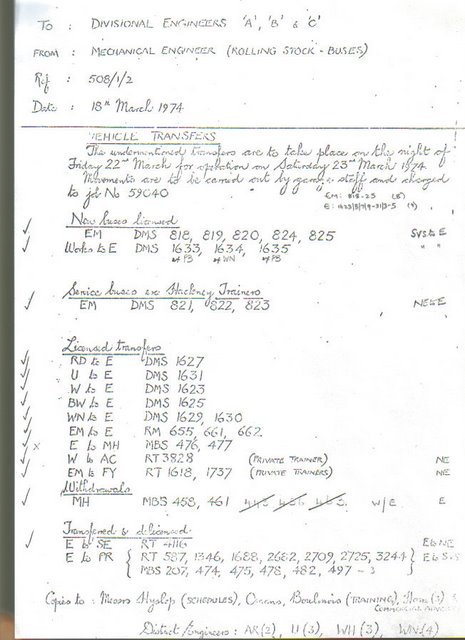 To : DIVISIONAL ENGINEERS 'A', 'B' & 'C'
FROM : MECHANICAL ENGINEER (ROLLING STOCK - BUSES)
Ref : 508/1/2
Date : 18th March 1974
VEHICLE TRANSFERS
The undermentioned transfers are to take place on the night of
Friday 22nd March for operation on Saturday 23rd March 1974.
Movements are to be carried out by garage staff and charged
to job No 59040
EM: 818-25 (8)
New buses licensed
✓ EM DMS 818, 819, 820, 824, 825 SVS to E
✓ Works to E DMS 1633, 1634, 1635 " "
Service buses ex Hackney Trainers
✓ EM DMS 821, 822, 823 NE to E
Licensed transfers
✓ RD to E DMS 1627
✓ U to E DMS 1631
✓ W to E DMS 1623
✓ BW to E DMS 1625
✓ WN to E DMS 1629, 1630
✓ EM to E RM 655, 661, 662.
✓ x E to MH MBS 476, 477
✓ W to AC RT 3828 (PRIVATE TRAINER) NE
✓ EM to FY RT 1618, 1737 (PRIVATE TRAINERS) NE
Withdrawals
✓ MH MBS 458, 461 W/E E
Transferred & delicensed
✓ E to SE RT E to NE
E to PR RT 587, 1346, 1688, 2682, 2709, 2725, 3244 E to
MBS 207, 474, 475, 478, 482, 497
Copies to : Messrs Hyslop (SCHEDULES), (TRAINING),
District Engineers : AR(2), U(3), WH(3), WN(4)